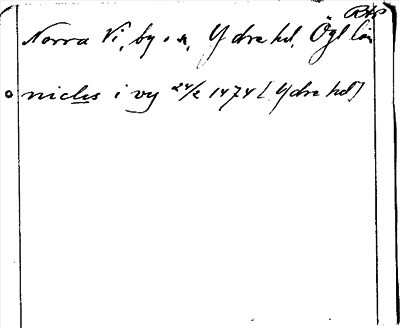 RAP
Norra Vi, by o sn, Ydre hd, Ögl län
o nicles i vy 24/2 1474 [Ydre hd]